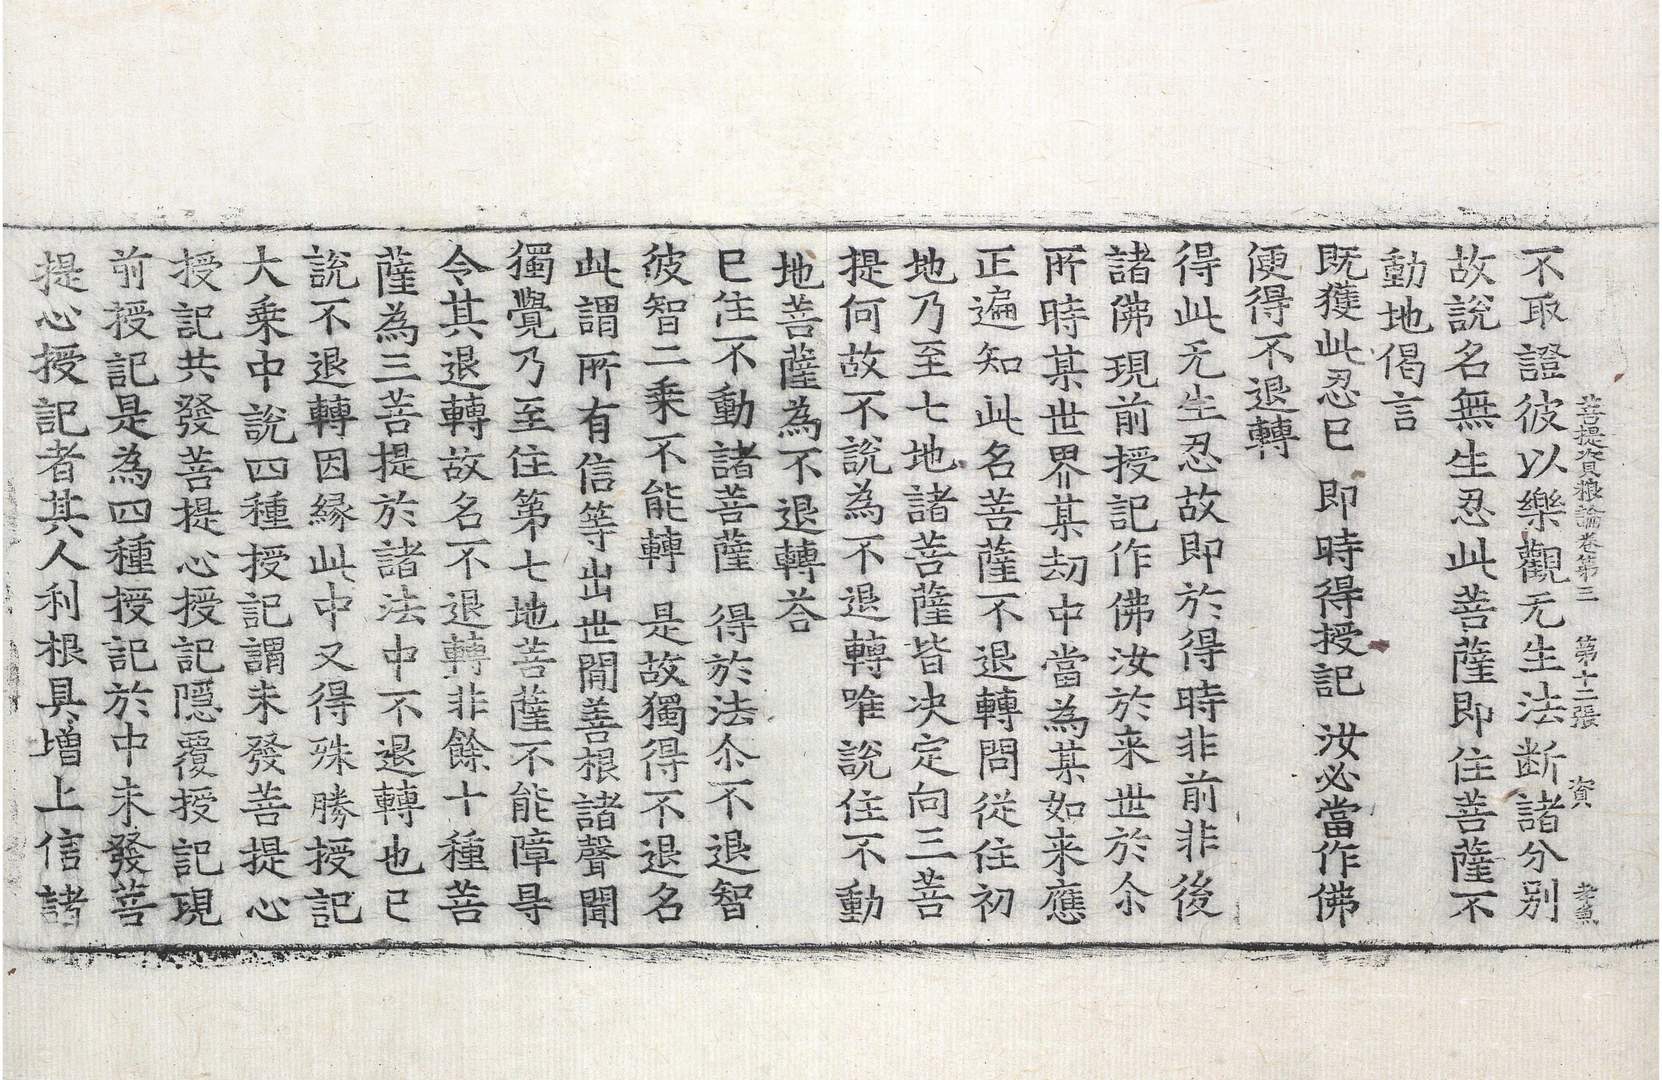 菩提資粮論卷第三 第十二張 資
不取證彼以樂觀无生法断諸分别
故說名無生忍此菩薩即住菩薩不
動地偈言
既獲此忍已 即時得授記 汝必當作佛
便得不退轉
得此无生忍故即於得時非前非後
諸佛現前授記作佛汝於来世於尒
所時某世界某劫中當為某如来應
正遍知此名菩薩不退轉問從住初
地乃至七地諸菩薩皆决定向三菩
提何故不說為不退轉唯說住不動
地菩薩為不退轉荅
已住不動諸菩薩 得於法尒不退智
彼智二乘不能轉 是故獨得不退名
此謂所有信等出世閒善根諸聲聞
獨覺乃至住第七地菩薩不能障㝵
令其退轉故名不退轉非餘十種菩
薩為三菩提於諸法中不退轉也已
說不退轉因緣此中又得殊勝授記
大乘中說四種授記謂未發菩提心
授記共發菩提心授記隱覆授記現
前授記是為四種授記於中未發菩
提心授記者其人利根具增上信諸